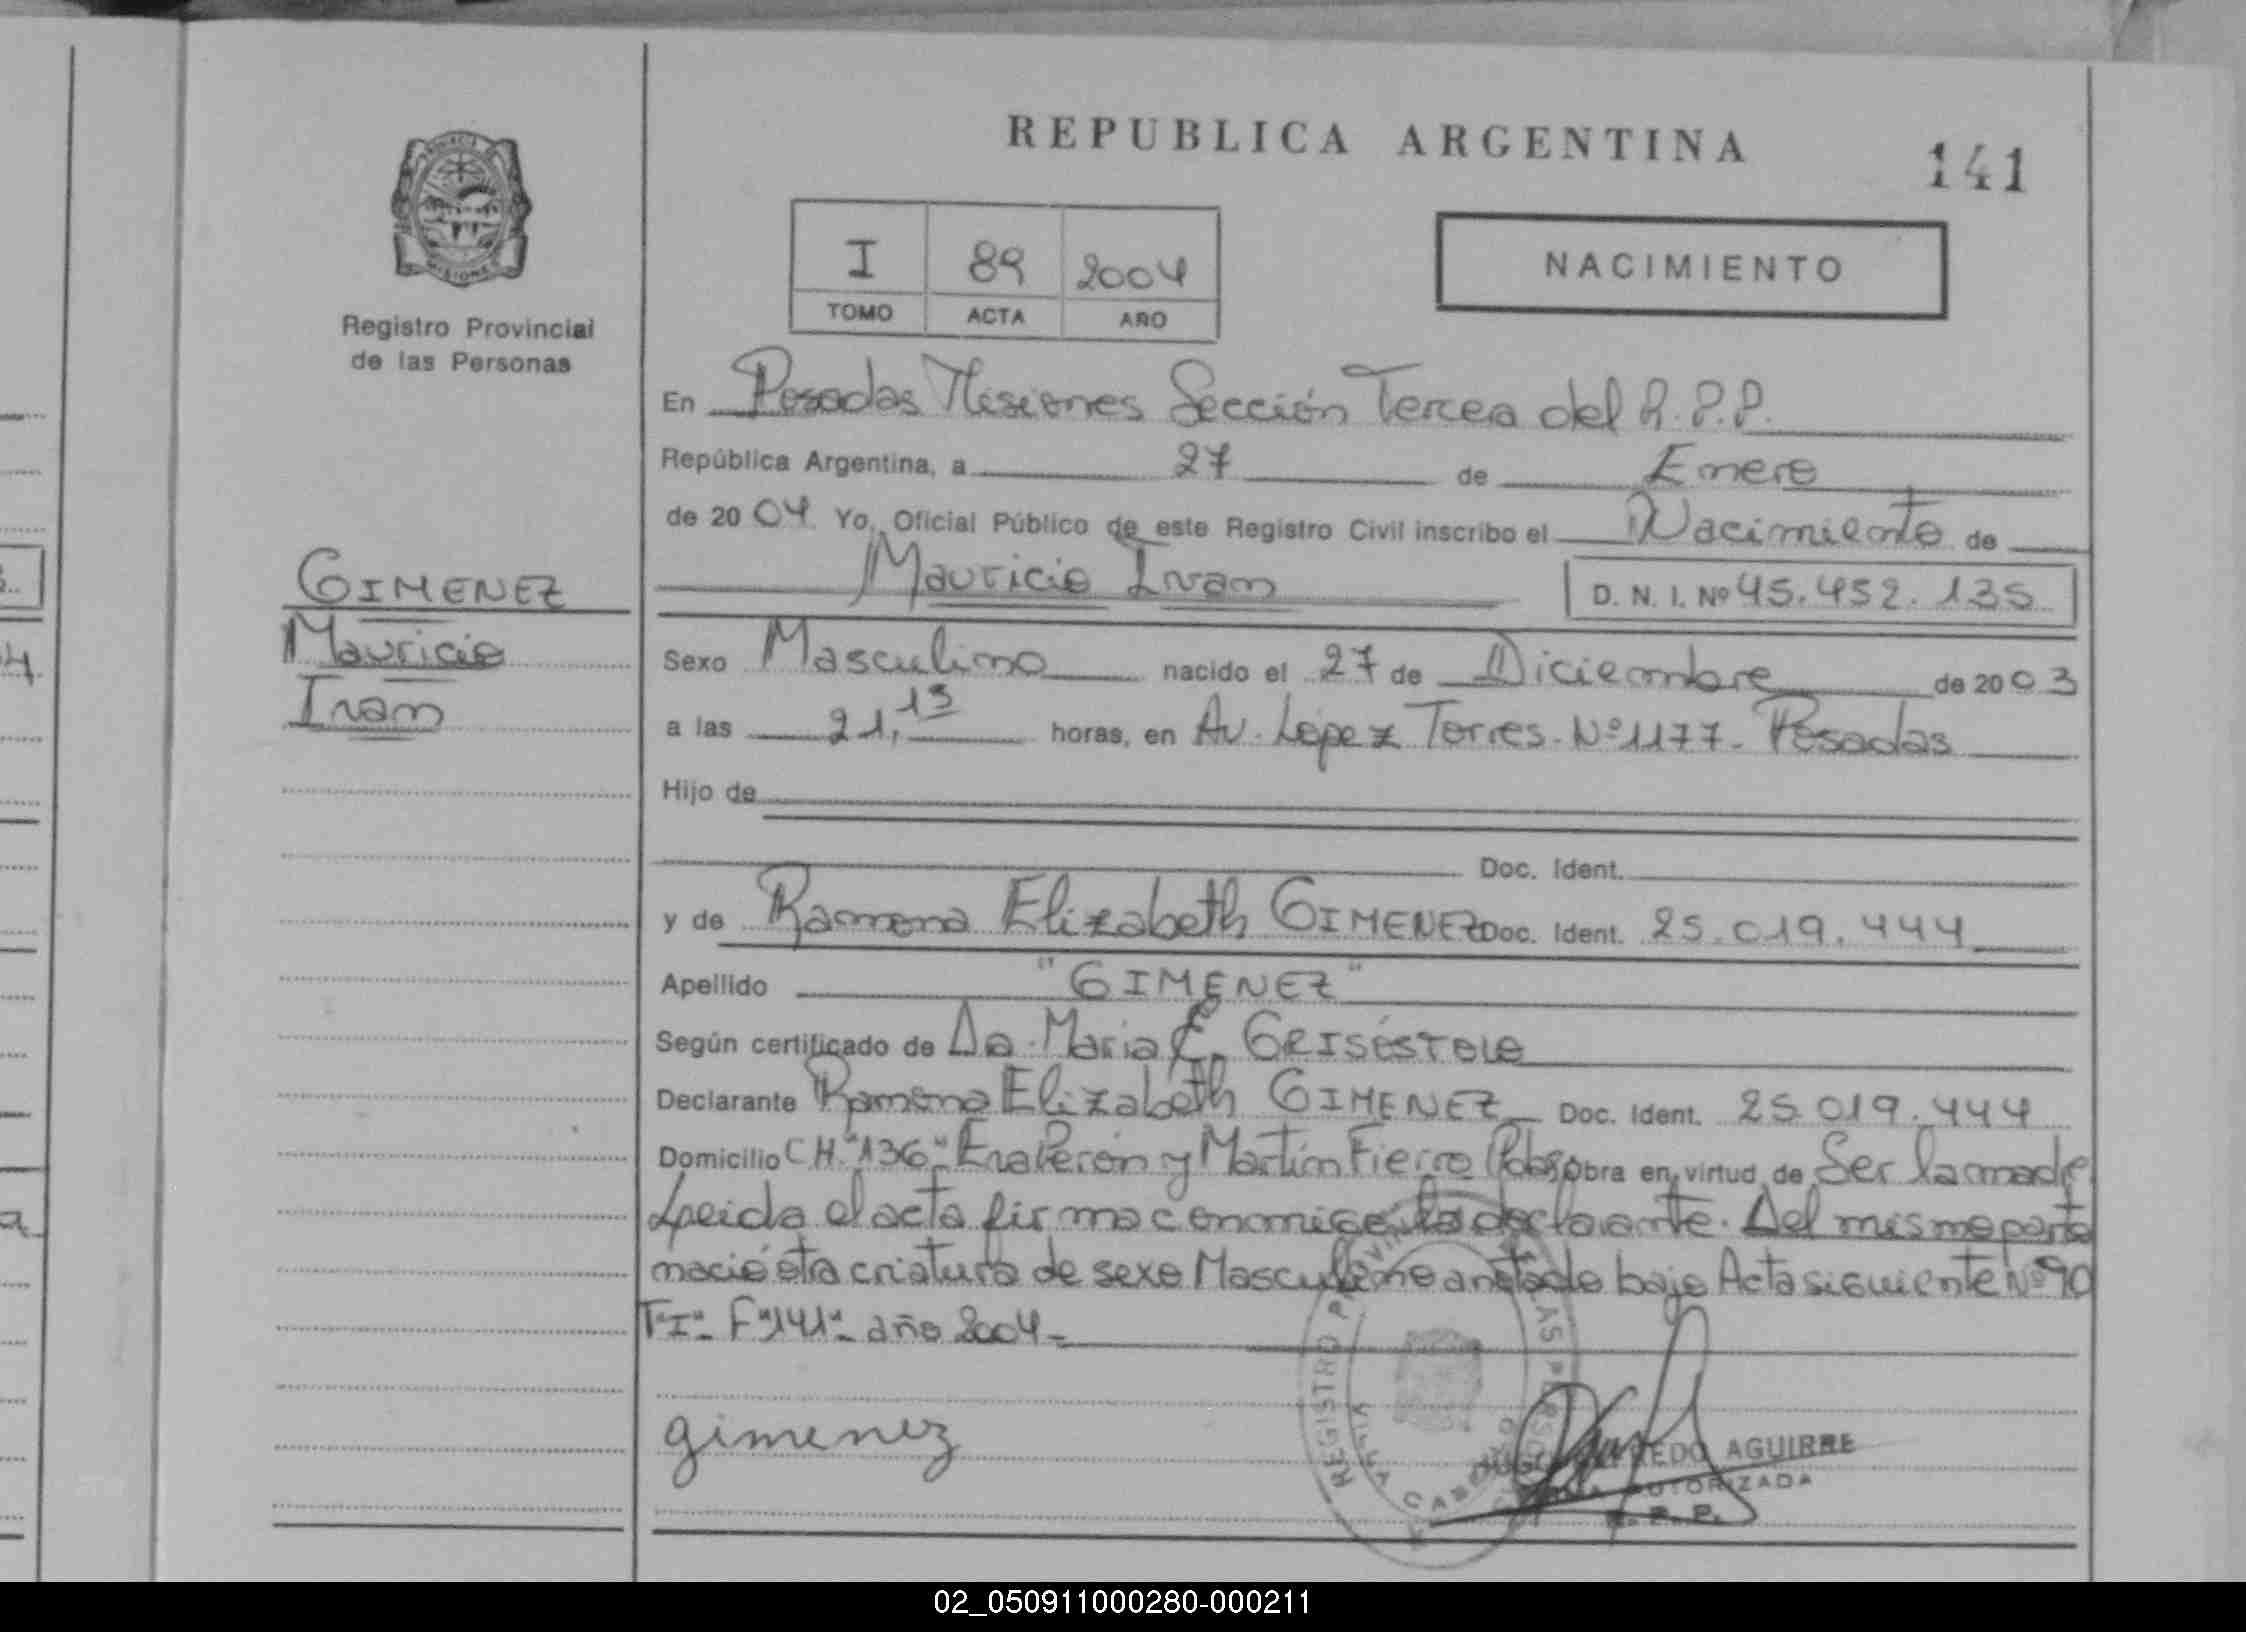 REPUBLICA ARGENTINA
141
I 89 2004
TOMO ACTA AÑO
NACIMIENTO
MISIONES
Registro Provincial
de las Personas
GIMENEZ
Mauricio
Ivan
En Posadas Misiones Sección Tercera del R.P.P.
República Argentina, a 27 de Enero
de 2004 Yo, Oficial Público de este Registro Civil inscribo el Nacimiento de
Mauricio Ivan D. N. I. Nº 45.452.135
Sexo Masculino nacido el 27 de Diciembre de 2003
a las 21,15 horas, en Av. López Torres. Nº 1177- Posadas
Hijo de
Doc. Ident.
y de Ramona Elizabeth GIMENEZ Doc. Ident. 25.019.444
Apellido "GIMENEZ"
Según certificado de Da. Maria E.
Declarante Ramona Elizabeth GIMENEZ Doc. Ident. 25.019.444
Domicilio CH."136" Eva Perón y Martín Fierro obra en virtud de Ser la madre
Leida el acta firma conmigo la declarante. Del mismo parto
nació otra criatura de sexo Masculino anotado bajo Acta siguiente Nº 90
T"I"- F"141"- año 2004-
gimenez
REGISTRO PROVINCIAL DE LAS PERSONAS
VILLA CABELLO
AGUIRRE
AUTORIZADA
R. P. P.
02_050911000280-000211